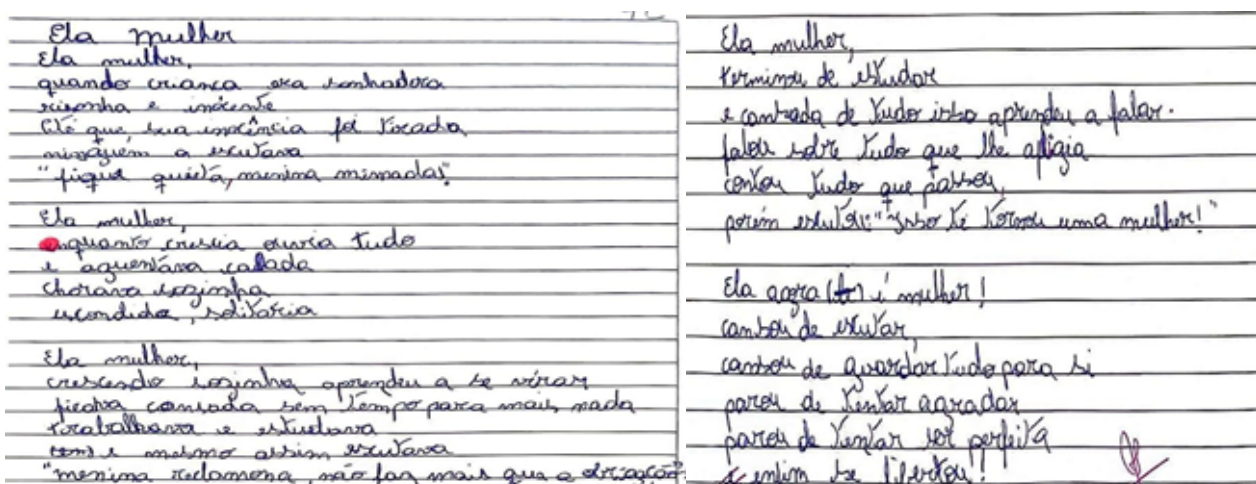 Ela mulher
Ela mulher,
quando criança era sonhadora
risonha e inocente
Até que sua inocência foi tirada
ninguém a escutava
"fique quieta, menina mimada!"
Ela mulher,
enquanto crescia ouvia tudo
e aguentava calada
chorava sozinha
escondida, solitária
Ela mulher,
crescendo sozinha aprendeu a se virar
ficava cansada sem tempo para mais nada
trabalhava e estudava
e mesmo assim escutava
"menina reclamona, não faz mais que a obrigação?
Ela mulher,
terminou de estudar
e cansada de tudo isso aprendeu a falar.
falou sobre tudo que lhe afligia
contou tudo que passou,
porém escutou: "Isso te tornou uma mulher!"
Ela agora é mulher!
cansou de escutar,
cansou de guardar tudo para si
parou de tentar agradar
parou de tentar ser perfeita
e enfim se libertou!